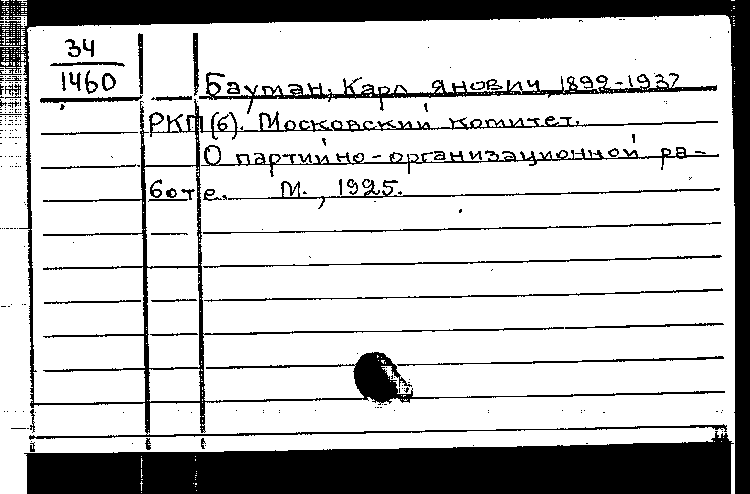 34
1460
Бауман, Карл Янович, 1892-1937
РКП(б). Московский комитет.
О партийно-организационной ра-
боте. М., 1925.